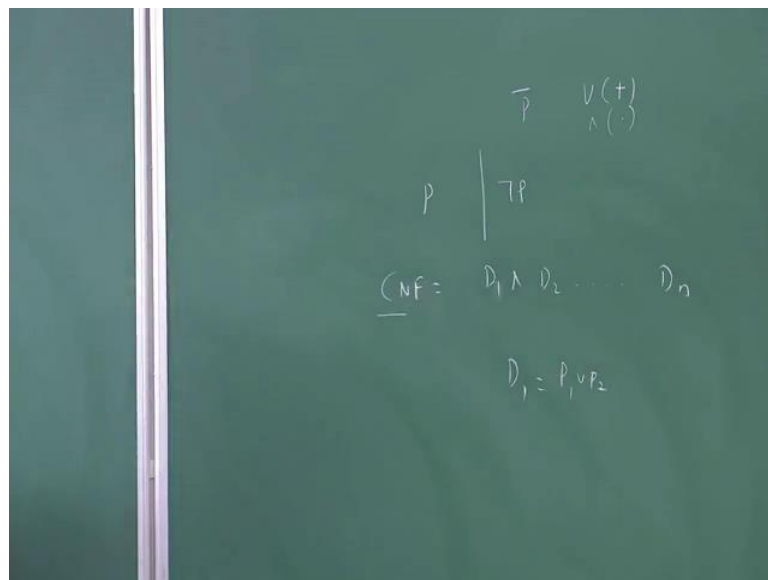 P̅ ∨(+)
∧(·)
P | ¬P
CNF = D₁ ∧ D₂ ..... Dₙ
D₁ = P₁ ∨ P₂